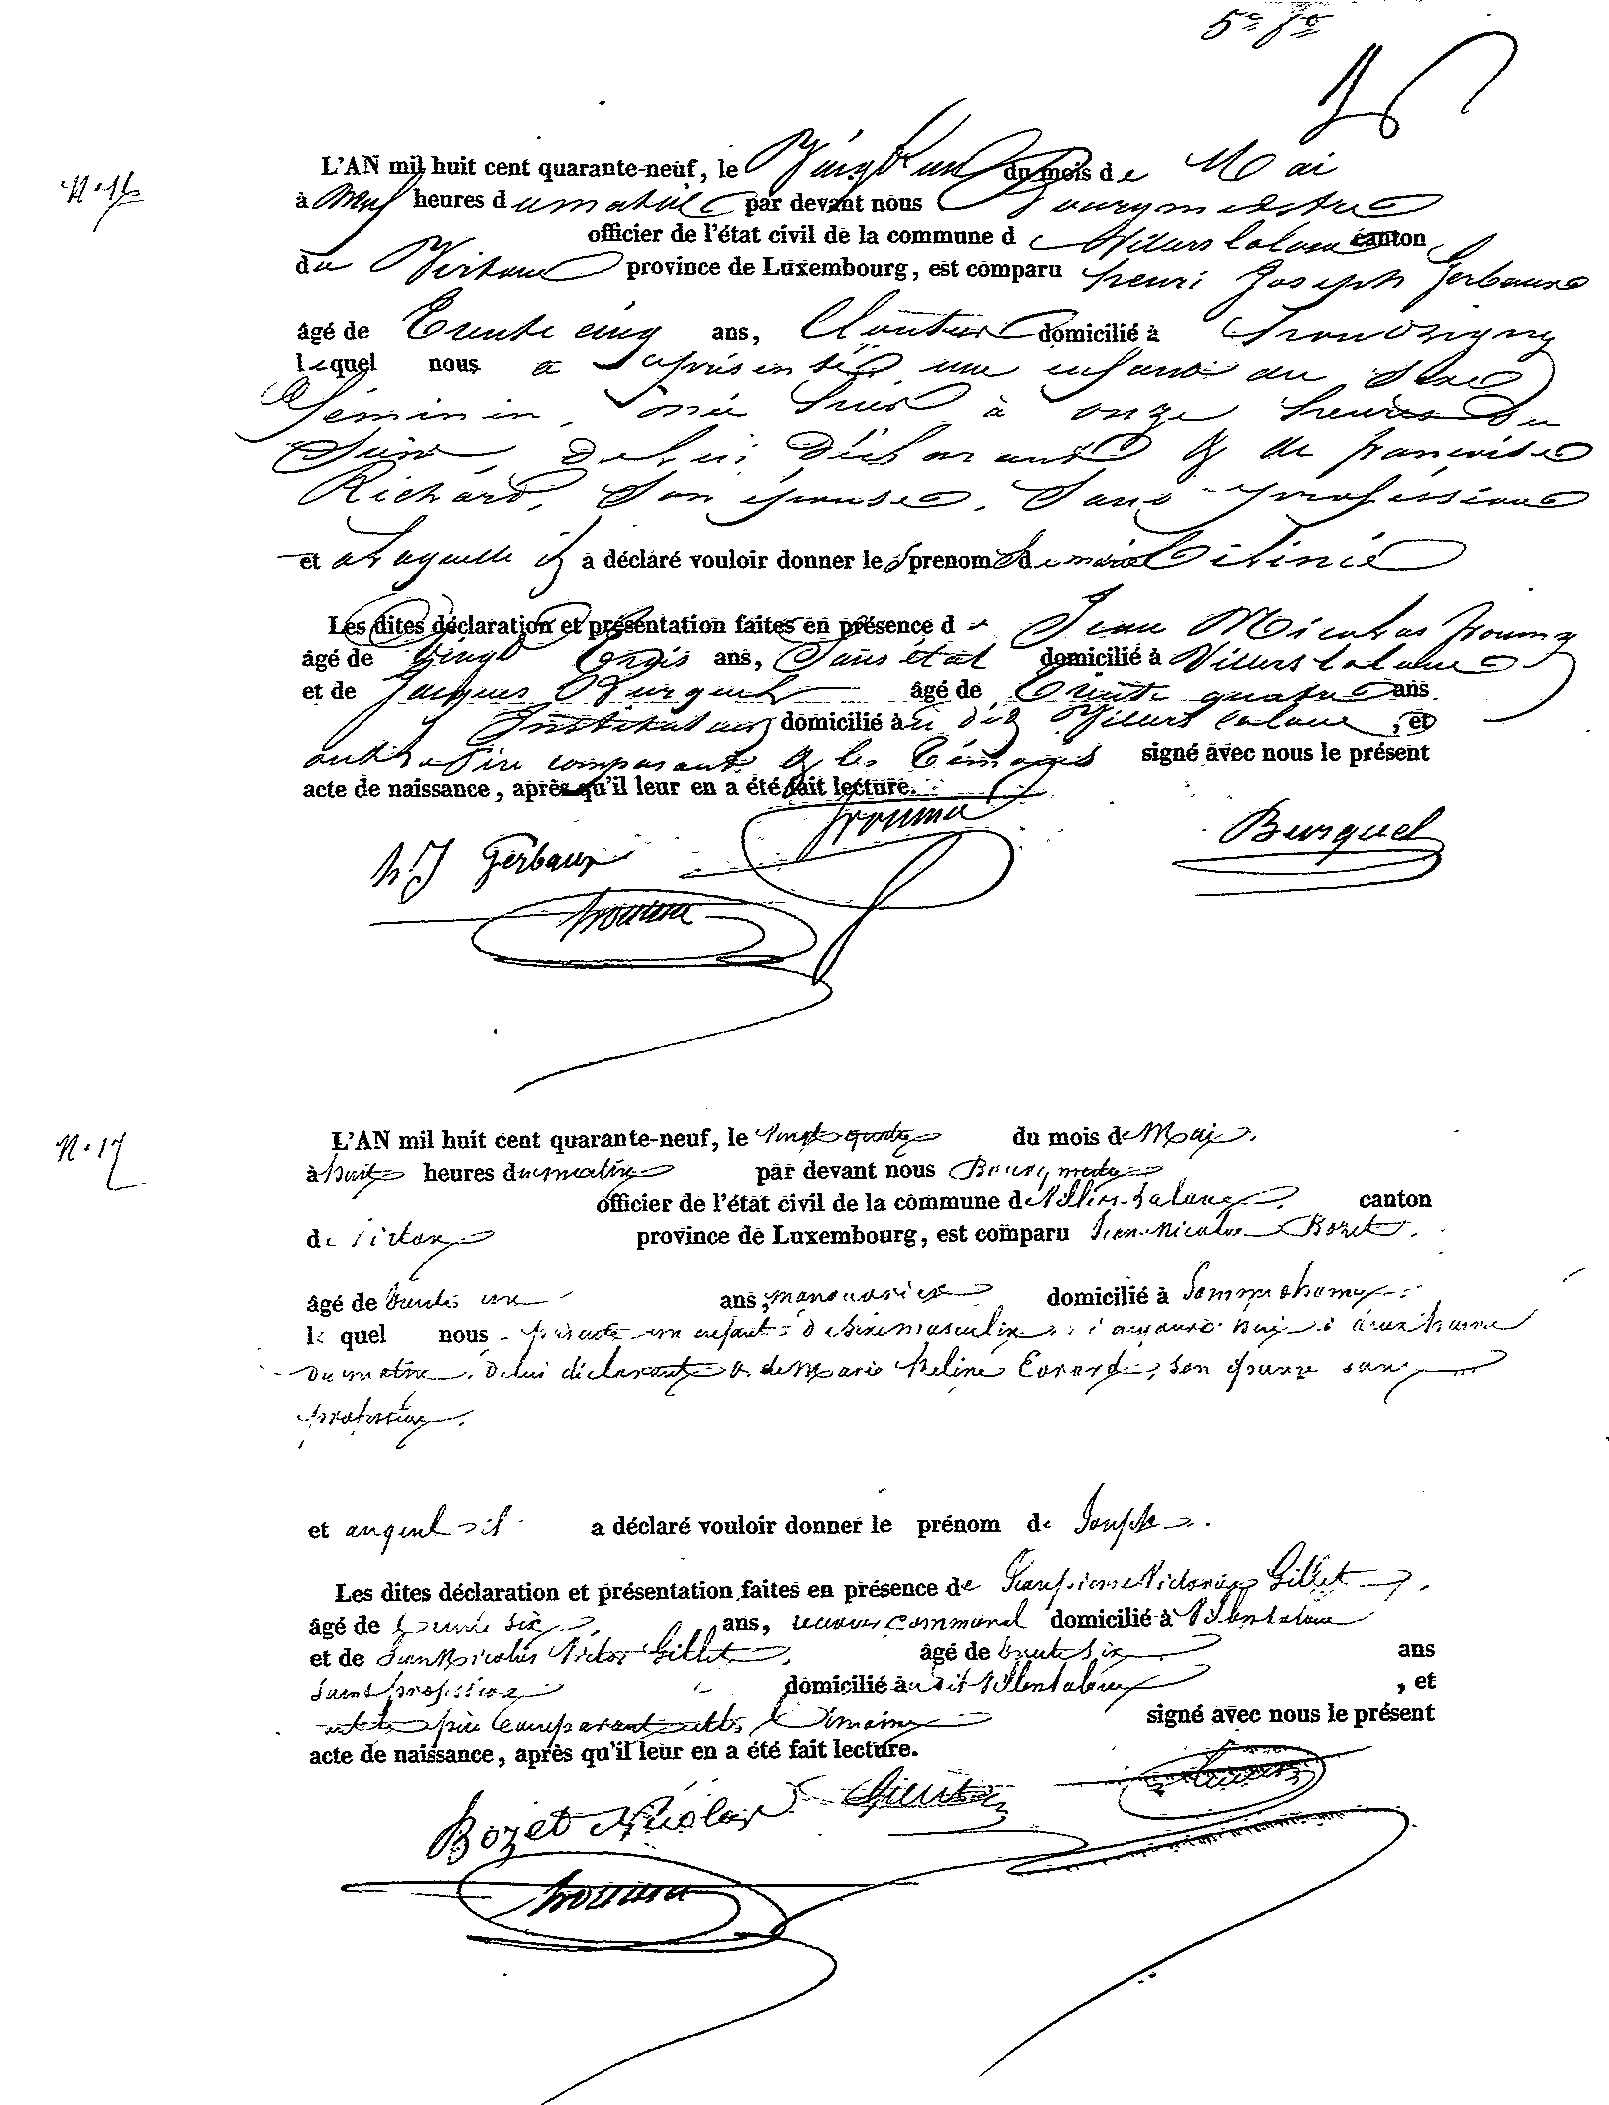 5e fo
N. 16
L'AN mil huit cent quarante-neuf, le Vingt un du mois de Mai
à neuf heures du matin par devant nous Bourgmestre
officier de l'état civil de la commune de Villers laloue canton
de Virton province de Luxembourg, est comparu henri Joseph Gerbaux
âgé de Trente cinq ans, Cloutier domicilié à
lequel nous a présenté une enfant du Sexe
féminin, née hier à onze heures du
Soir, de lui déclarant & de françoise
Richard, Son épouse, Sans profession
et a Laquelle il a déclaré vouloir donner le s prenom s de marie
Les dites déclaration et présentation faites en présence de Jean Nicolas
âgé de Vingt trois ans, Sans état domicilié à Villers laloue
et de Jacques Burquel âgé de Trente quatre ans
Instituteur domicilié à u dit Villers laloue, et
ont le Père comparant & les Témoins signé avec nous le présent
acte de naissance, après qu'il leur en a été fait lecture.
h J Gerbaux Burquel
N. 17
L'AN mil huit cent quarante-neuf, le Vingt quatre du mois de Mai.
à huit heures du matin par devant nous Bourgmestre
officier de l'état civil de la commune de Villers-Laloue canton
de Virton province de Luxembourg, est comparu Jean Nicolas Bozet.
âgé de trente un ans, manouvrier domicilié à Sommethonne
le quel nous présente un enfant de Sexe masculin, né aujourd'hui à deux heures
du matin, de lui déclarant & de Marie Evrard, son épouse sans
profession.
et auquel il a déclaré vouloir donner le prénom de Joseph.
Les dites déclaration et présentation faites en présence de Jean Gillet
âgé de trente six ans, receveur communal domicilié à Villerslaloue
et de Jean Nicolas Victor Gillet, âgé de trente six ans
sans profession domicilié à u dit Villerslaloue, et
ont le père Comparant et les témoins signé avec nous le présent
acte de naissance, après qu'il leur en a été fait lecture.
Bozet Nicolas